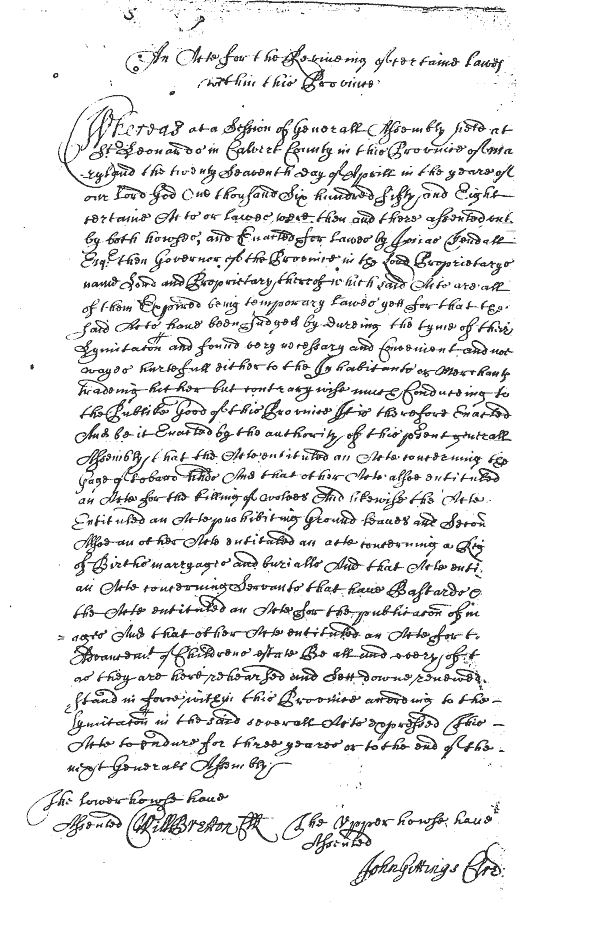 An Acte for the Reviveing of certaine lawes
within this Province
Whereas at a Session of Generall Assembly held at
St. Leonards in Calvert County in this Province of Ma
ryland the twenty Seaventh day of Aprill in the yeare of
our Lord God One thousand Six hundred fifty and Eight
certaine Acts or lawes were then and there assented unt
by both howses, and Enacted for lawes by Josias Fendall
Esqr. then Governor of the Province in the Lord Proprietarys
name Lord and Proprietary thereof which said Acts are all
of them Expired being temporary lawes yett for that the
said Acts have been Judged by dureing the tyme of their
Lymitacon and found very necessary and Convenient and not
wayes hurtfull either to the Inhabitants or Merchants
tradeing hither but contrary wise much Conduceing to
the Publike Good of this Province It is therefore Enacted
And be it Enacted by the authority of this prsent generall
Assembly, that the Acte entituled an Acte concerning the
gage of tobacco hhds And that other Acte alsoe entituled
an Acte for the killing of wolves And likewise the Acte
Entituled an Acte prohibiting Ground leaves and Secon
Alsoe an other Acte entituled an acte concerning a Reg
of Births marryages and burialls And that Acte enti
an Acte concerning Servants that have Bastards
the Acte entituled an Acte for the publicacon of m
= ages And that other Acte entituled an Acte for t
Advancemt. of Childrens estate Be all and every of t
as they are here rehearsed and Sett downe renewed
stand in force within this Province according to the –
lymitacon in the said severall Acts expressed This –
Acte to Endure for three yeares or to the end of the –
next Generall Assembly
The lower howse have
Assented Will Bretton Clk
The Upper howse have
Assented
John Gittings Cler